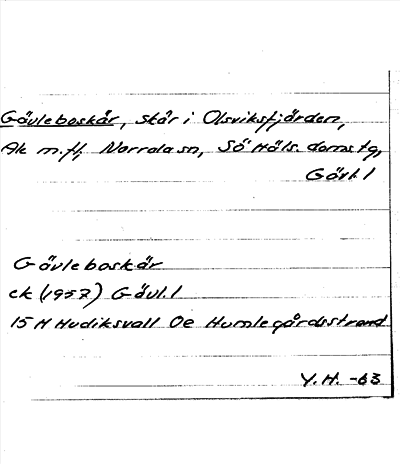 Gävleboskär, skär i Olsviksfjärden,
Ak m.fl., Norrala sn, Sö Häls. doms tg,
Gävl. l
Gävleboskär
ek (1957) Gävl. l
15 H Hudiksvall Oe Humlegårdsstrand
Y.H. -63